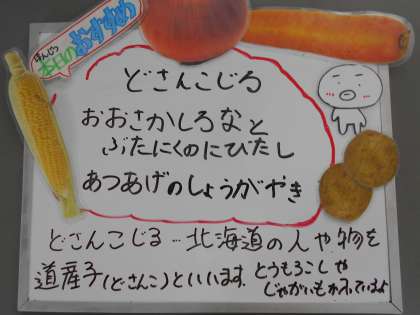 ほんじつ
本日のおすすめ
どさんこじる
おおさかしろなと
ぶたにくのにびたし
あつあげのしょうがやき
どさんこじる…北海道の人や物を
道産子(どさんこ)といいます。とうもろこしや
じゃがいもが入っているよ